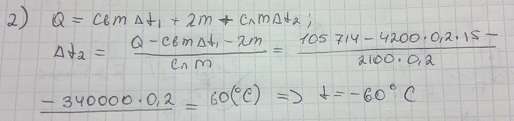 2) Q = cвm Δt₁ + λm + cлmΔt₂;
Δt₂ = (Q - cвm Δt₁ - λm) / (cлm) = (105 714 - 4200 · 0,2 · 15 -) / (2100 · 0,2)
- 340000 · 0,2 = 60(°C) => t = -60°C